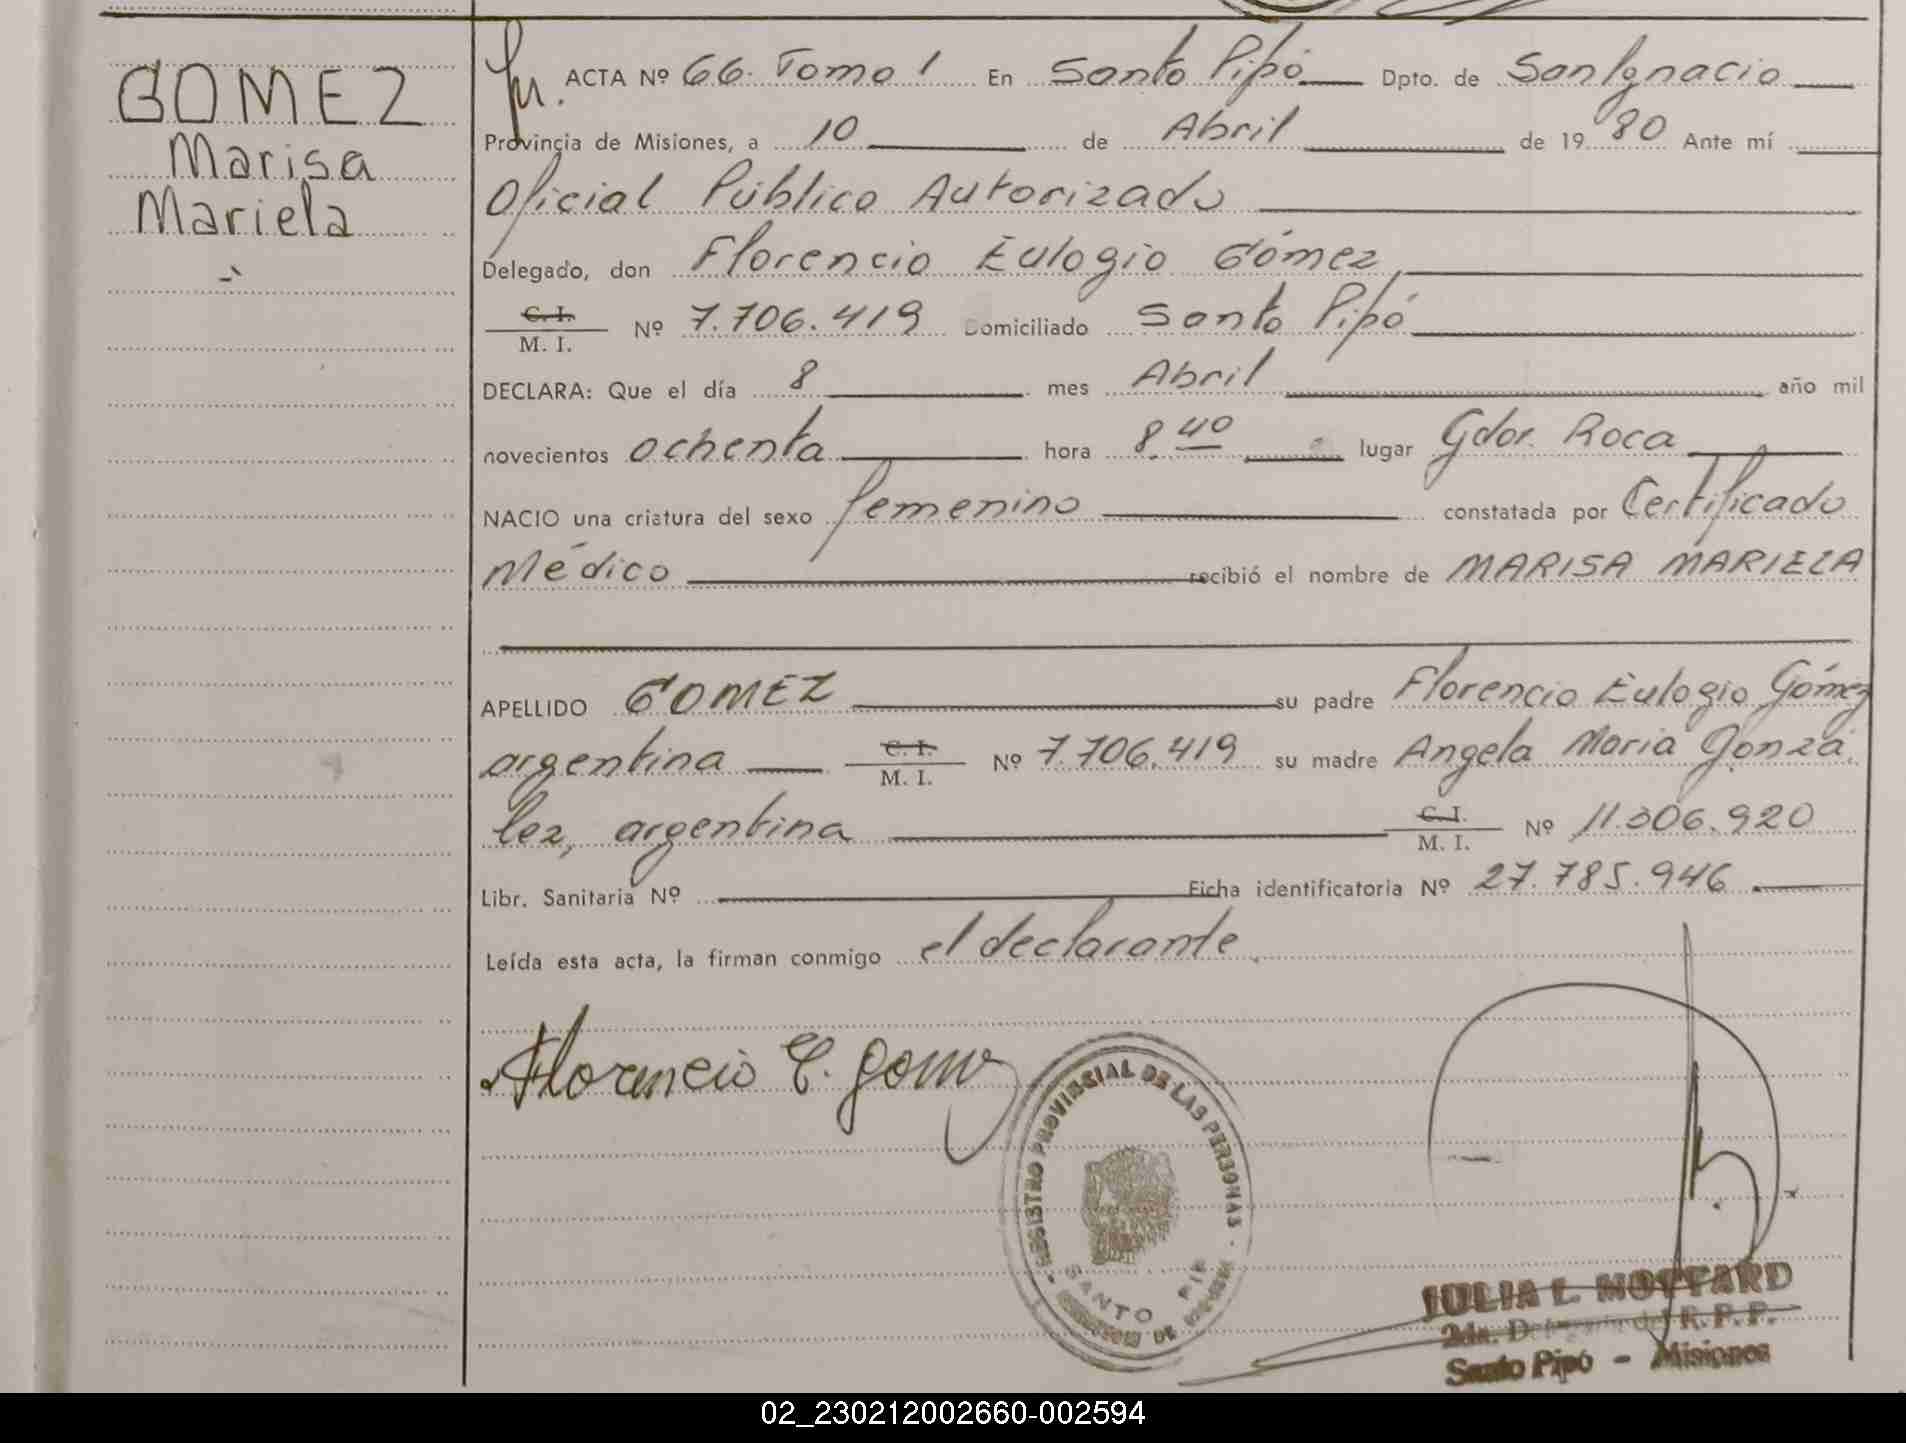 GOMEZ
Marisa
Mariela
ACTA Nº 66. Tomo 1 En Santo Pipó Dpto. de San Ignacio
Provincia de Misiones, a 10 de Abril de 1980 Ante mí
Oficial Público Autorizado
Delegado, don Florencio Eulogio Gómez,
C. I.
M. I. Nº 7.706.419 Domiciliado Santo Pipó
DECLARA: Que el día 8 mes Abril año mil
novecientos ochenta hora 8.40 lugar Gdor. Roca
NACIO una criatura del sexo femenino constatada por Certificado
Médico recibió el nombre de MARISA MARIELA
APELLIDO GOMEZ su padre Florencio Eulogio Gómez
argentina C. I.
M. I. Nº 7.706.419 su madre Angela Maria Gonzá
lez, argentina C. I.
M. I. Nº 11.306.920
Libr. Sanitaria Nº Ficha identificatoria Nº 27.785.946.
Leída esta acta, la firman conmigo el declarante.
Florencio E. Gomez
REGISTRO PROVINCIAL DE LAS PERSONAS
SANTO PIPO
JULIA L. MOTTARD
2da. Delegada del R. P. P.
Santo Pipó - Misiones
02_230212002660-002594